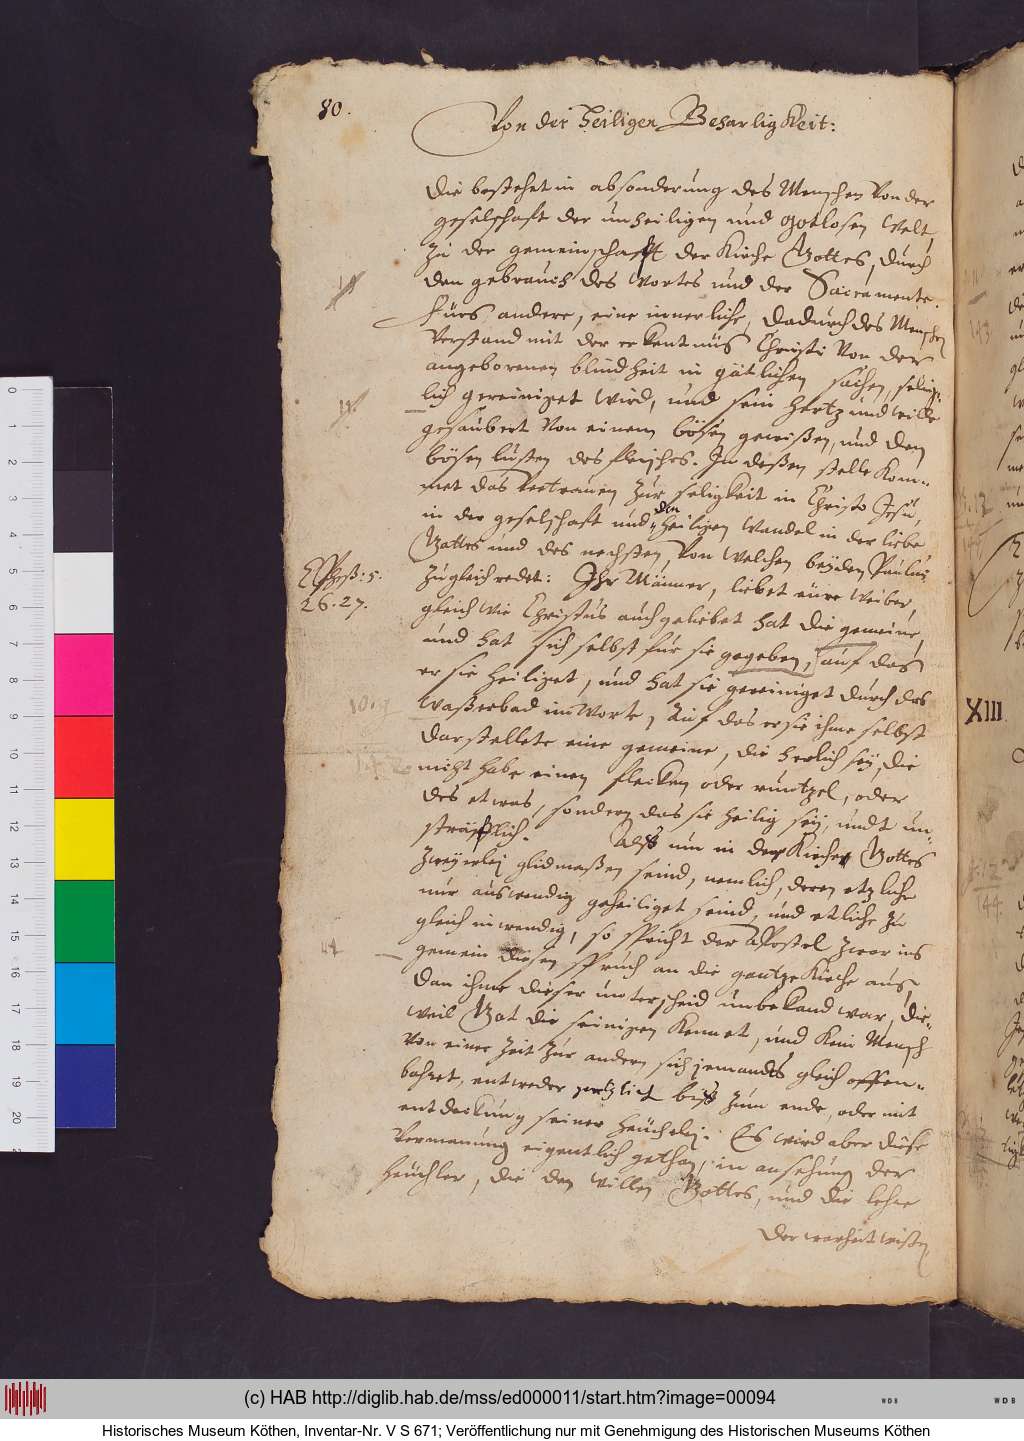 80.
Von der heiligen Beharligkeit:
Die bestehet in absonderung des Menschen von der
geselschaft der unheiligen und gotlosen Welt,
zu der gemeinschaft der Kirche Gottes, durch
den gebrauch des Wortes und der Sacramente.
Fürs andere, eine innerliche, dadurch des Menschen
Verstand mit der erkentnüs Christi von der
angeborenen blindheit in götlichen sachen, selig-
lich gereiniget wird, und sein hertz und wille
gesaubert von einem bösen gewißen, und den
bösen lüsten des fleisches. In deßen stelle kom-
met das vertrauen zur seligkeit in Christo Jesu,
in der geselschaft und den heiligen wandel in der liebe
Gottes und des nechsten von welchen beyden Paulus
Epheß: 5.
26. 27.
zugleich redet: Ihr Männer, liebet eüre weiber,
gleich wie Christus auch geliebet hat die gemeine,
und hat sich selbst für sie gegeben, auf das
er sie heiliget, und hat sie gereiniget durch das
Waßerbad im Worte, Auf das er sie ihme selbst
darstellete eine gemeine, die herlich sey, die
nicht habe einen flecken oder runtzel, oder
des etwas, sondern das sie heilig sey, undt un-
sträflich. Alß nun in der Kirche Gottes
zweyerley glidmaßen seind, nemlich, deren etzliche
nur auswendig geheiliget seind, und etliche zu
gleich inwendig, so spricht der Apostel zwar ins
44
gemein diesen spruch an die gantze Kirche aus,
dan ihme dieser unterscheid unbekand war, die-
weil Got die seinigen kennet, und kein Mensch
von einer zeit zur andern sich jemands gleich offen-
bahret, entweder bis zum ende, oder mit
entdeckung seiner heüchelej. Es wird aber diese
Vermanung eigentlich gethan, in ansehung der
heüchler, die den willen Gottes, und die lehre
der warheit wißen
XIII
0
1
2
3
4
5
6
7
8
9
10
11
12
13
14
15
16
17
18
19
20
(c) HAB http://diglib.hab.de/mss/ed000011/start.htm?image=00094
WDB
WDB
Historisches Museum Köthen, Inventar-Nr. V S 671; Veröffentlichung nur mit Genehmigung des Historischen Museums Köthen